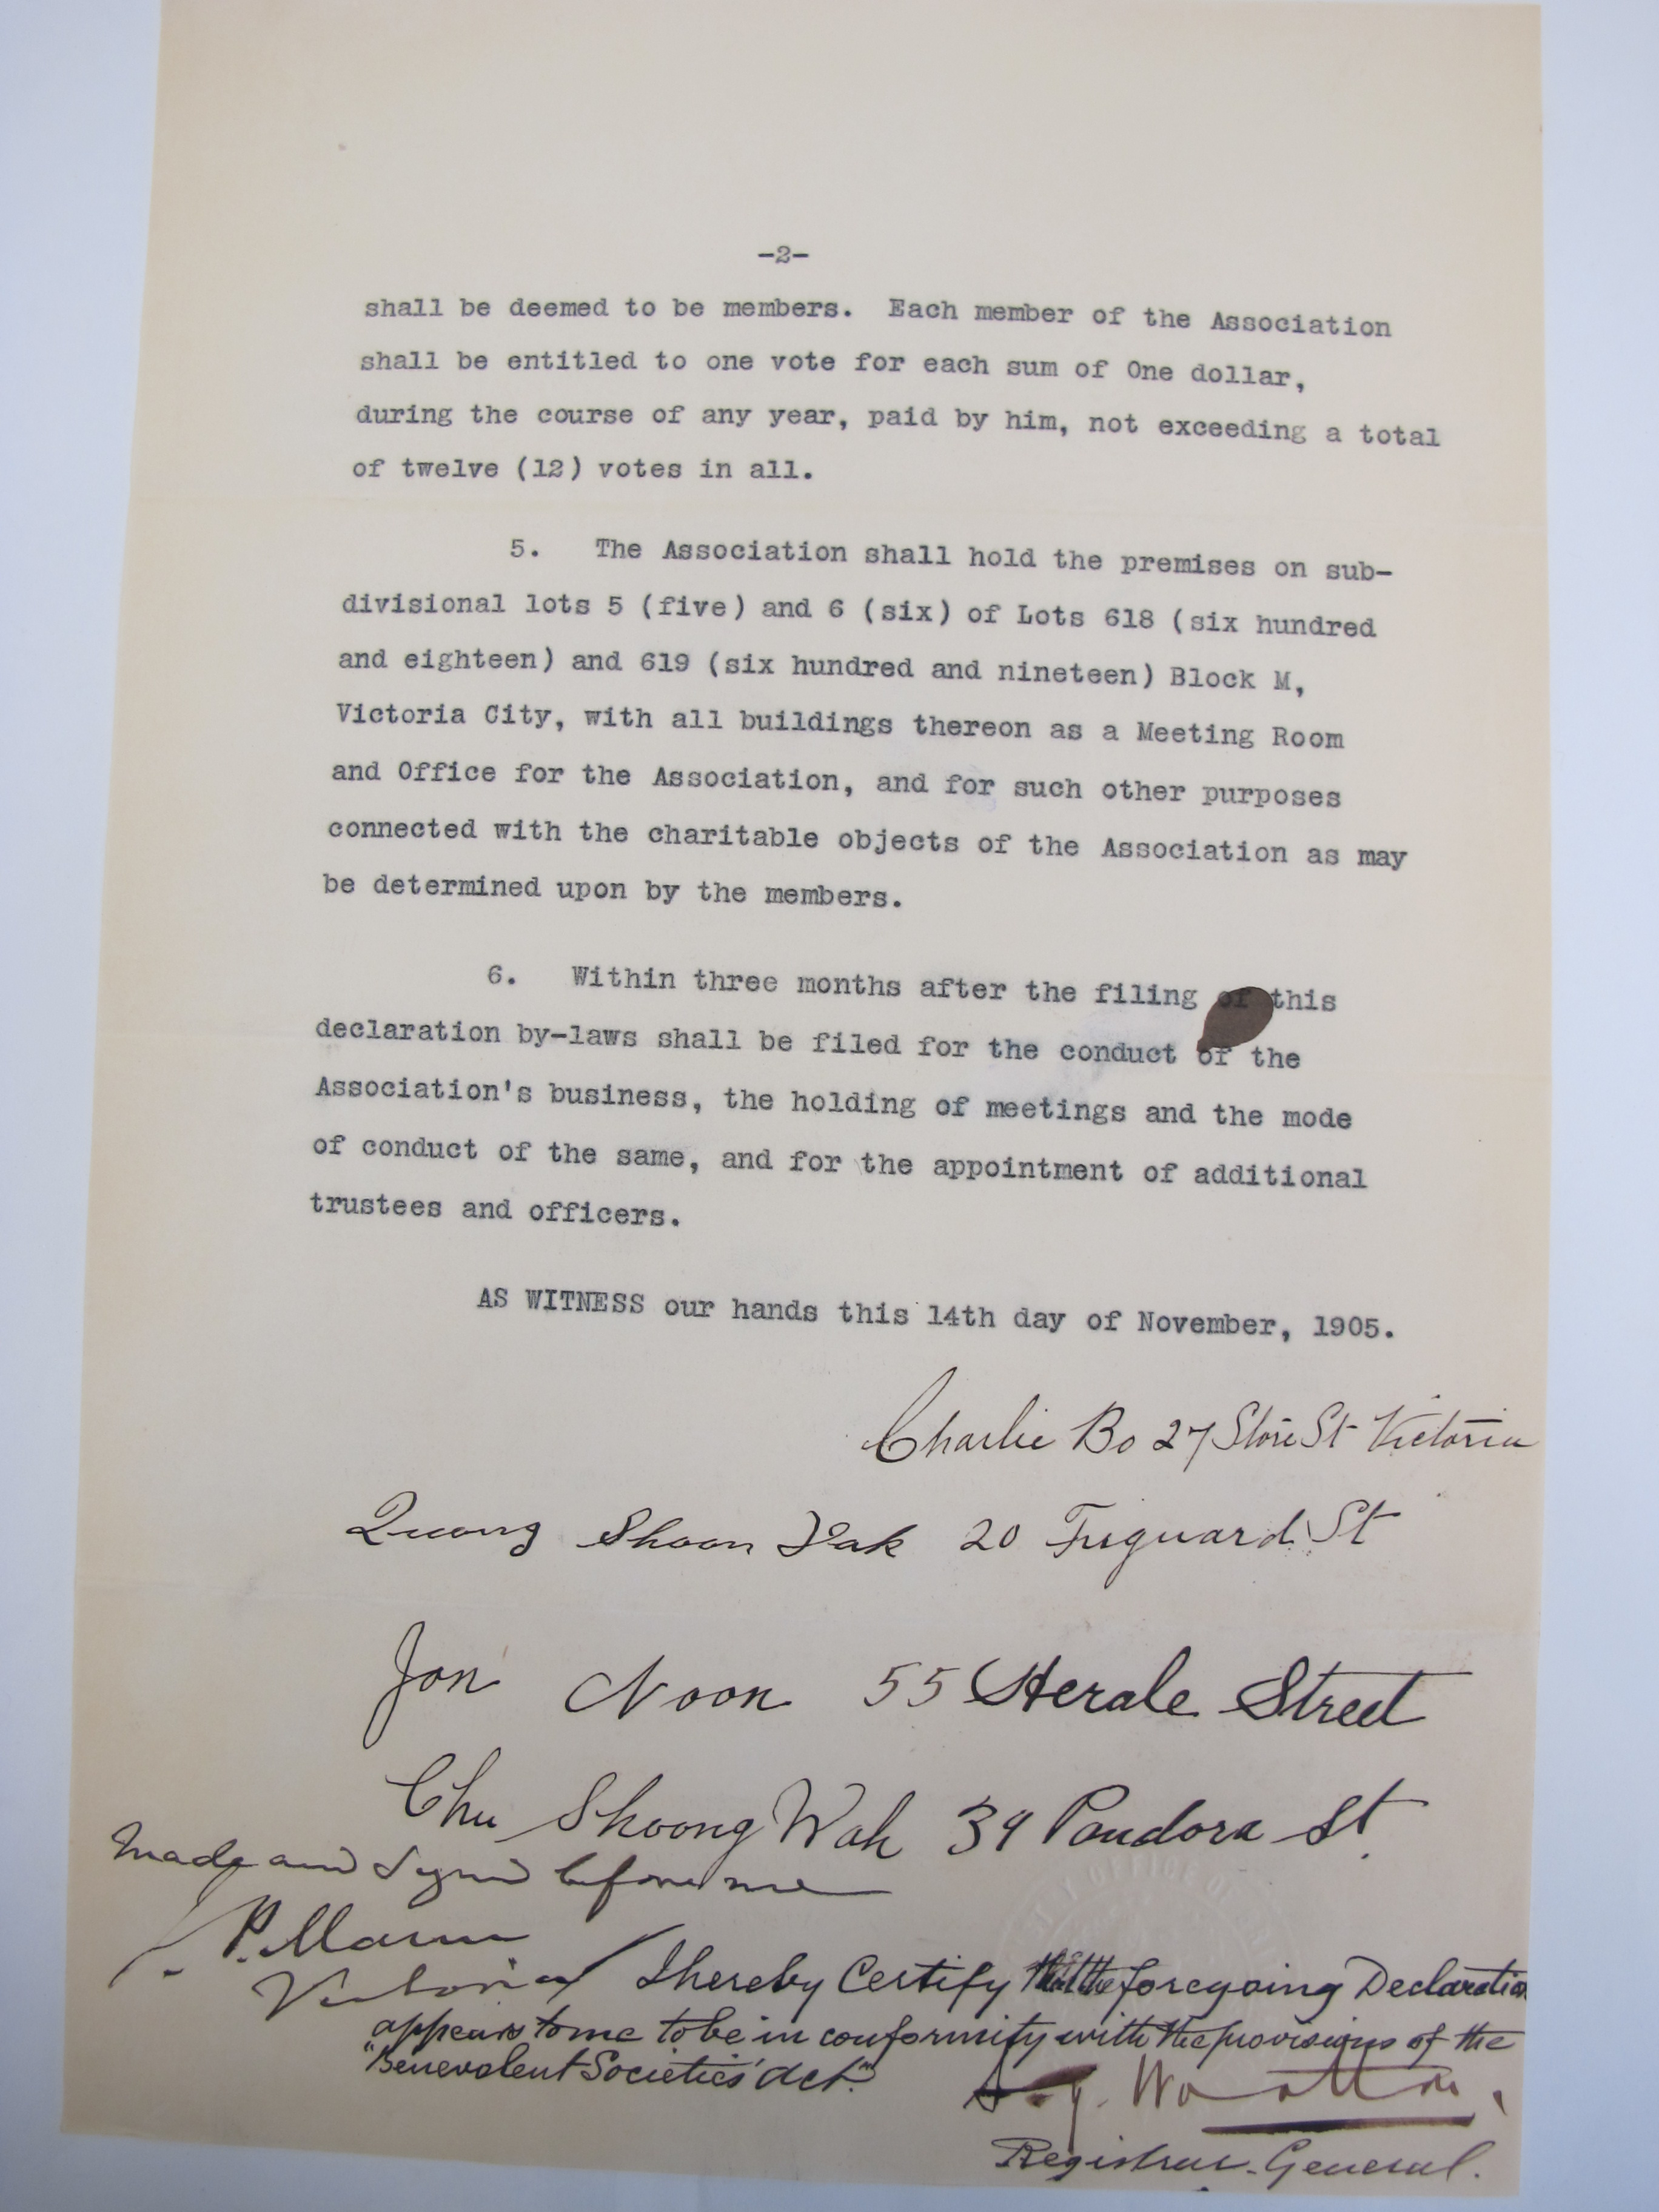 -2-
shall be deemed to be members. Each member of the Association
shall be entitled to one vote for each sum of One dollar,
during the course of any year, paid by him, not exceeding a total
of twelve (12) votes in all.
5. The Association shall hold the premises on sub-
divisional lots 5 (five) and 6 (six) of Lots 618 (six hundred
and eighteen) and 619 (six hundred and nineteen) Block M,
Victoria City, with all buildings thereon as a Meeting Room
and Office for the Association, and for such other purposes
connected with the charitable objects of the Association as may
be determined upon by the members.
6. Within three months after the filing of this
declaration by-laws shall be filed for the conduct of the
Association's business, the holding of meetings and the mode
of conduct of the same, and for the appointment of additional
trustees and officers.
AS WITNESS our hands this 14th day of November, 1905.
Charlie Bo 27 Store St Victoria
Quong Shoon Yak 20 Fisguard St
Jon Noon 55 Herale Street
Chu Shoong Wah 39 Pandora St.
Made and Signed before me
Victoria
I hereby Certify that the foregoing Declaration
appears to me to be in conformity with the provisions of the
"Benevolent Societies' Act."
S. Y. Wootton.
Registrar-General.